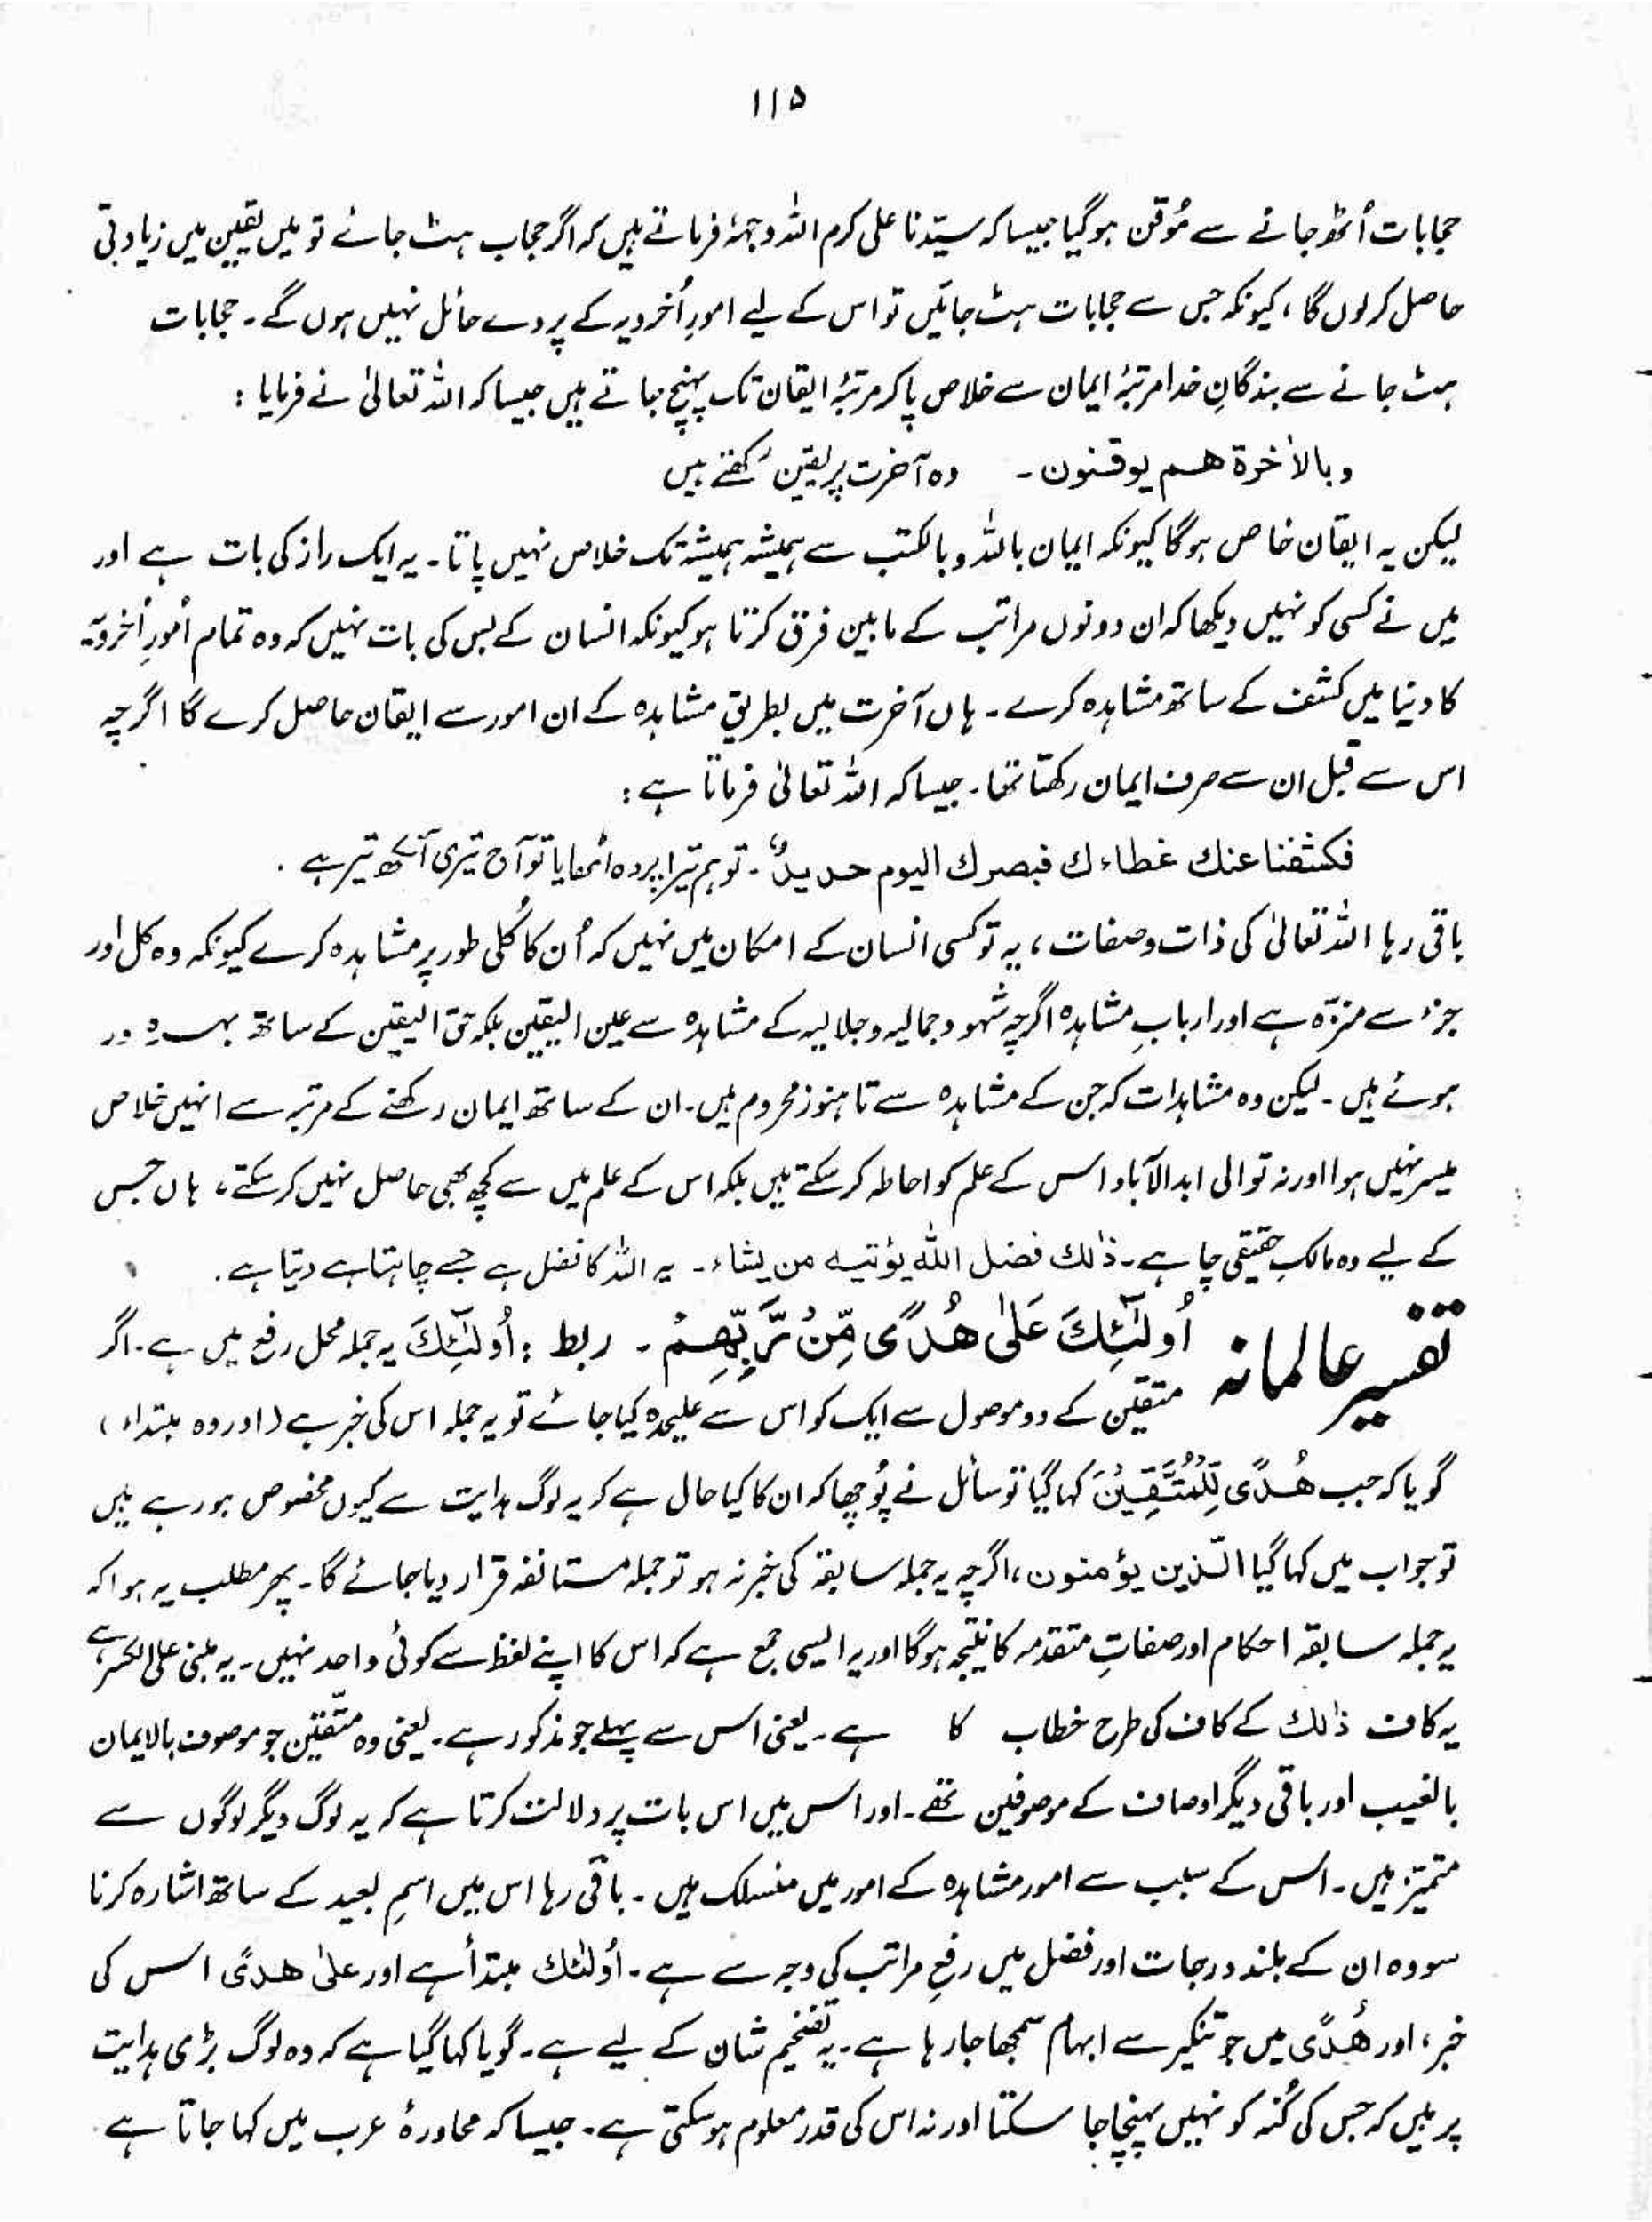 ۱۱۵
حجابات اُٹھ جانے سے مُوقن ہوگیا جیسا کہ سیّدنا علی کرم اللہ وجہہٗ فرماتے ہیں کہ اگر حجاب ہٹ جائے تو میں یقین میں زیادتی
حاصل کرلوں گا، کیونکہ جس سے حجابات ہٹ جائیں تو اس کے لیے امورِ اُخرویہ کے پردے حائل نہیں ہوں گے۔ حجابات
ہٹ جانے سے بندگانِ خدا مرتبۂ ایمان سے خلاص پاکر مرتبۂ ایقان تک پہنچ جاتے ہیں جیسا کہ اللہ تعالیٰ نے فرمایا :
وبالاٰخرۃ ھم یوقنون۔ وہ آخرت پر یقین رکھتے ہیں
لیکن یہ ایقان خاص ہوگا کیونکہ ایمان باللہ وبالکتب سے ہمیشہ ہمیشہ تک خلاص نہیں پاتا۔ یہ ایک راز کی بات ہے اور
میں نے کسی کو نہیں دیکھا کہ ان دونوں مراتب کے مابین فرق کرتا ہو کیونکہ انسان کے بس کی بات نہیں کہ وہ تمام اُمورِ اُخرویّہ
کا دنیا میں کشف کے ساتھ مشاہدہ کرے۔ ہاں آخرت میں بطریقِ مشاہدہ کے ان امور سے ایقان حاصل کرے گا اگرچہ
اس سے قبل ان سے صرف ایمان رکھتا تھا۔ جیسا کہ اللہ تعالیٰ فرماتا ہے :
فکشفنا عنك غطاءك فبصرك الیوم حدیدٌ۔ تو ہم تیرا پردہ اٹھایا تو آج تیری آنکھ تیز ہے .
باقی رہا اللہ تعالیٰ کی ذات وصفات، یہ تو کسی انسان کے امکان میں نہیں کہ اُن کا کُلی طور پر مشاہدہ کرے کیونکہ وہ کل اور
جزء سے منزّہ ہے اور اربابِ مشاہدہ اگرچہ شہود جمالیہ وجلالیہ کے مشاہدہ سے عین الیقین بلکہ حق الیقین کے ساتھ بہرہ ور
ہوئے ہیں۔ لیکن وہ مشاہدات کہ جن کے مشاہدہ سے تا ہنوز محروم ہیں۔ ان کے ساتھ ایمان رکھنے کے مرتبہ سے انہیں خلاص
میسر نہیں ہوا اور نہ تو الی ابد الآباد اس کے علم کو احاطہ کرسکتے ہیں بلکہ اس کے علم میں سے کچھ بھی حاصل نہیں کرسکتے، ہاں جس
کے لیے وہ مالکِ حقیقی چاہے۔ ذٰلك فضل اللہ یؤتیہ من یشاء۔ یہ اللہ کا فضل ہے جسے چاہتا ہے دیتا ہے.
تفسیر عالمانہ اُولٰٓئِكَ عَلٰی ھُدًی مِّنْ رَّبِّھِمْ۔ ربط : اُولٰٓئِكَ یہ جملہ محل رفع میں ہے۔ اگر
متقین کے دو موصول سے ایک کو اس سے علیحدہ کیا جائے تو یہ جملہ اس کی خبر ہے (اور وہ مبتداء)
گویا کہ جب ھُدًی لِّلْمُتَّقِیْنَ کہا گیا تو سائل نے پُوچھا کہ ان کا کیا حال ہے کہ یہ لوگ ہدایت سے کیوں مخصوص ہو رہے ہیں
تو جواب میں کہا گیا الّذین یؤمنون، اگرچہ یہ جملہ سابقہ کی خبر نہ ہو تو جملہ مستانفہ قرار دیا جائے گا۔ پھر مطلب یہ ہوا کہ
یہ جملہ سابقہ احکام اور صفاتِ متقدمہ کا نتیجہ ہوگا اور یہ ایسی جمع ہے کہ اس کا اپنے لفظ سے کوئی واحد نہیں۔ یہ مبنی علی الکسر ہے
یہ کاف ذٰلك کے کاف کی طرح خطاب کا ہے۔ یعنی اس سے پہلے جو مذکور ہے۔ یعنی وہ متّقین جو موصوف بالایمان
بالغیب اور باقی دیگر اوصاف کے موصوفین تھے۔ اور اس میں اس بات پر دلالت کرتا ہے کہ یہ لوگ دیگر لوگوں سے
متمیّز ہیں۔ اس کے سبب سے امور مشاہدہ کے امور میں منسلک ہیں۔ باقی رہا اس میں اسمِ بعید کے ساتھ اشارہ کرنا
سو وہ ان کے بلند درجات اور فضل میں رفعِ مراتب کی وجہ سے ہے۔ اُولٰئك مبتدأ ہے اور علیٰ ھدًی اس کی
خبر، اور ھُدًی میں جو تنکیر سے ابہام سمجھا جا رہا ہے۔ یہ تفخیم شان کے لیے ہے۔ گویا کہا گیا ہے کہ وہ لوگ بڑی ہدایت
پر ہیں کہ جس کی کُنہ کو نہیں پہنچا جا سکتا اور نہ اس کی قدر معلوم ہوسکتی ہے۔ جیسا کہ محاورۂ عرب میں کہا جاتا ہے